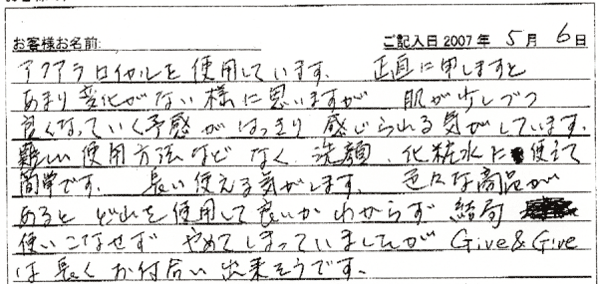 お客様お名前: ご記入日 2007年 5月 6日
アクアラロイヤルを使用しています。 正直に申しますと
あまり変化がない様に思いますが 肌が少しづつ
良くなっていく予感がはっきり感じられる気がしています。
難しい使用方法などなく、洗顔、化粧水に使えて
簡単です。 長い使える気がします。 色々な商品が
あると どれを使用して良いかわからず 結局
使いこなせず やめてしまっていましたが Give&Give
は長くお付合い出来そうです。